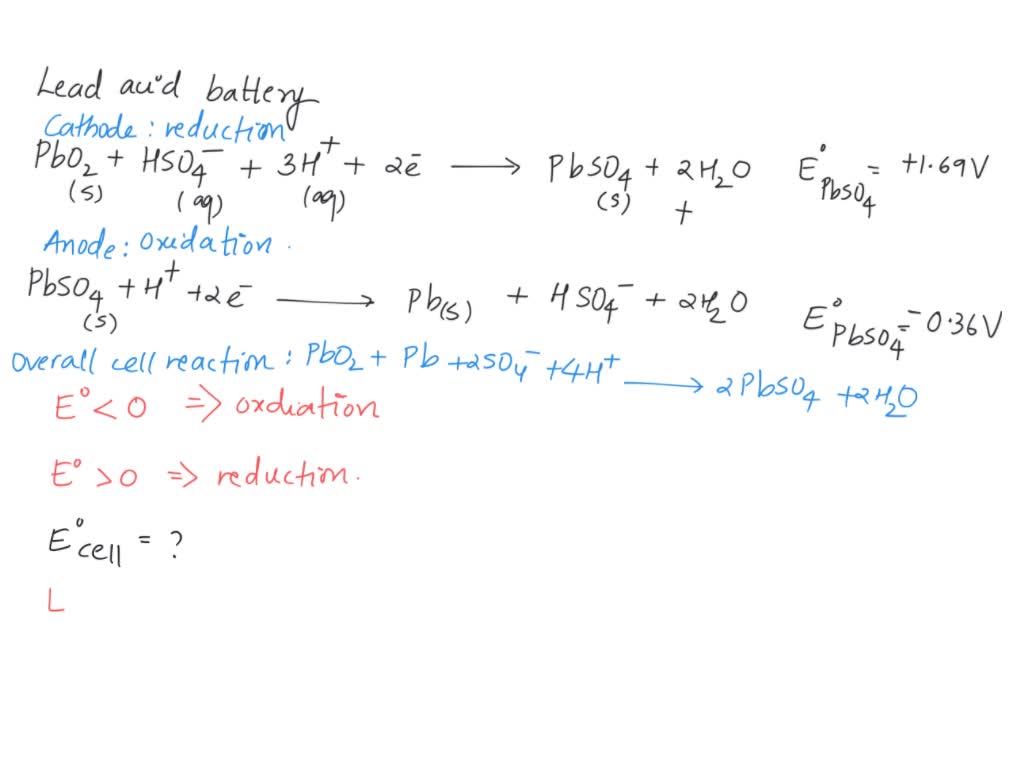 Lead acid battery
Cathode : reduction
PbO₂ + HSO₄⁻ + 3H⁺ + 2e⁻ ⟶ PbSO₄ + 2H₂O E°PbSO₄ = +1.69V
(s) (aq) (aq) (s) +
Anode : Oxidation .
PbSO₄ + H⁺ + 2e⁻ ⟶ Pb(s) + HSO₄⁻ + 2H₂O E°PbSO₄ = -0.36V
(s)
Overall cell reaction : PbO₂ + Pb + 2SO₄⁻ + 4H⁺ ⟶ 2PbSO₄ + 2H₂O
E° < 0 ⇒ oxdiation
E° > 0 ⇒ reduction.
E°cell = ?
L